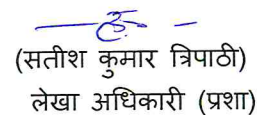 (सतीश कुमार त्रिपाठी)
लेखा अधिकारी (प्रशा)